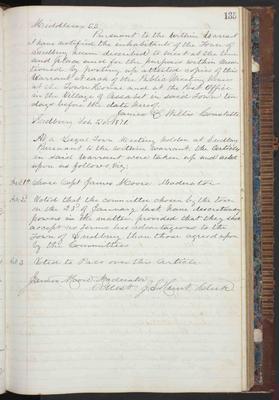 135
Middlesex SS.
Pursuant to the within Warrant
I have notified the inhabitants of the Town of
Sudbury herein described to meet at the time
and place and for the purposes within men
tioned by posting up attested copies of this
Warrant at each of the Public Meeting Houses
at the Town House and at the Post Office
in the Village of Assabet in said Town ten
days before the date hereof.
James Willis Constable
Sudbury Feb 1871
At a Legal Town Meeting holden at Sudbury
Pursuant to the within warrant. The Articles
in said warrant were taken up and acted
upon as follows, viz;
Art 1st Chose Capt James Moore Moderator
Art 2 Voted that the committee chosen by the town
on the 23d of January last have discretionary
powers in the matter, provided that they
accept no terms less advantageous to the
Town of Sudbury than those agreed upon
by the Committees
Art 3 Voted to Pass over this Article.
James Moore Moderator
Attest J. S. Hunt Clerk